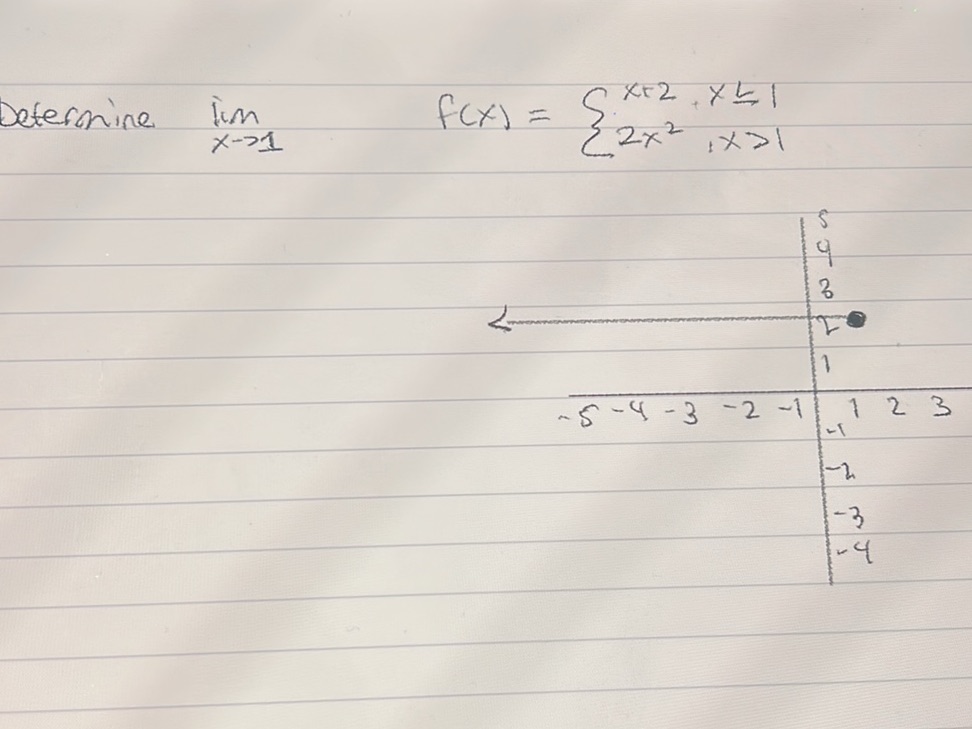 Determine lim f(x) = { x+2 , x ≤ 1
x->1 2x² , x > 1
5
4
3
2
1
-5 -4 -3 -2 -1 1 2 3
-1
-2
-3
-4